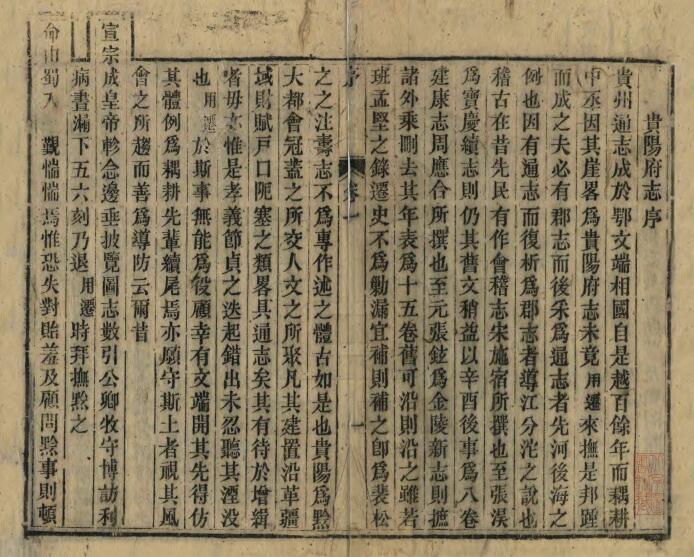 貴陽府志序
貴州通志成於鄂文端相國自是越百餘年而耦耕
中丞因其崖畧為貴陽府志未竟用遷來撫是邦踵
而成之夫必有郡志而後采為通志者先河後海之
例也因有通志而復析為郡志者導江分沱之說也
稽古在昔先民有作會稽志宋施宿所撰也至張淏
為寶慶續志則仍其舊文稍益以辛酉後事為八卷
建康志周應合所撰也至元張鉉為金陵新志則摭
諸外乘刪去其年表為十五卷舊可沿則沿之雖若
班孟堅之錄遷史不為勦漏宜補則補之即為裴松
序 卷一 一
之之注壽志不為專作述之體古如是也貴陽為黔
大都會冠蓋之所交人文之所聚凡其建置沿革疆
域財賦戶口阨塞之類畧具通志矣其有待於增緝
者毋亦惟是孝義節貞之迭起錯出未忍聽其湮沒
也用遷於斯事無能為役顧幸有文端開其先得仿
其體例為耦耕先輩續尾焉亦願守斯土者視其風
會之所趨而善為導防云爾昔
宣宗成皇帝軫念邊垂披覽圖志數引公卿牧守博訪利
病晝漏下五六刻乃退用遷時拜撫黔之
命由蜀入覲惴惴焉惟恐失對貽羞及顧問黔事則頓